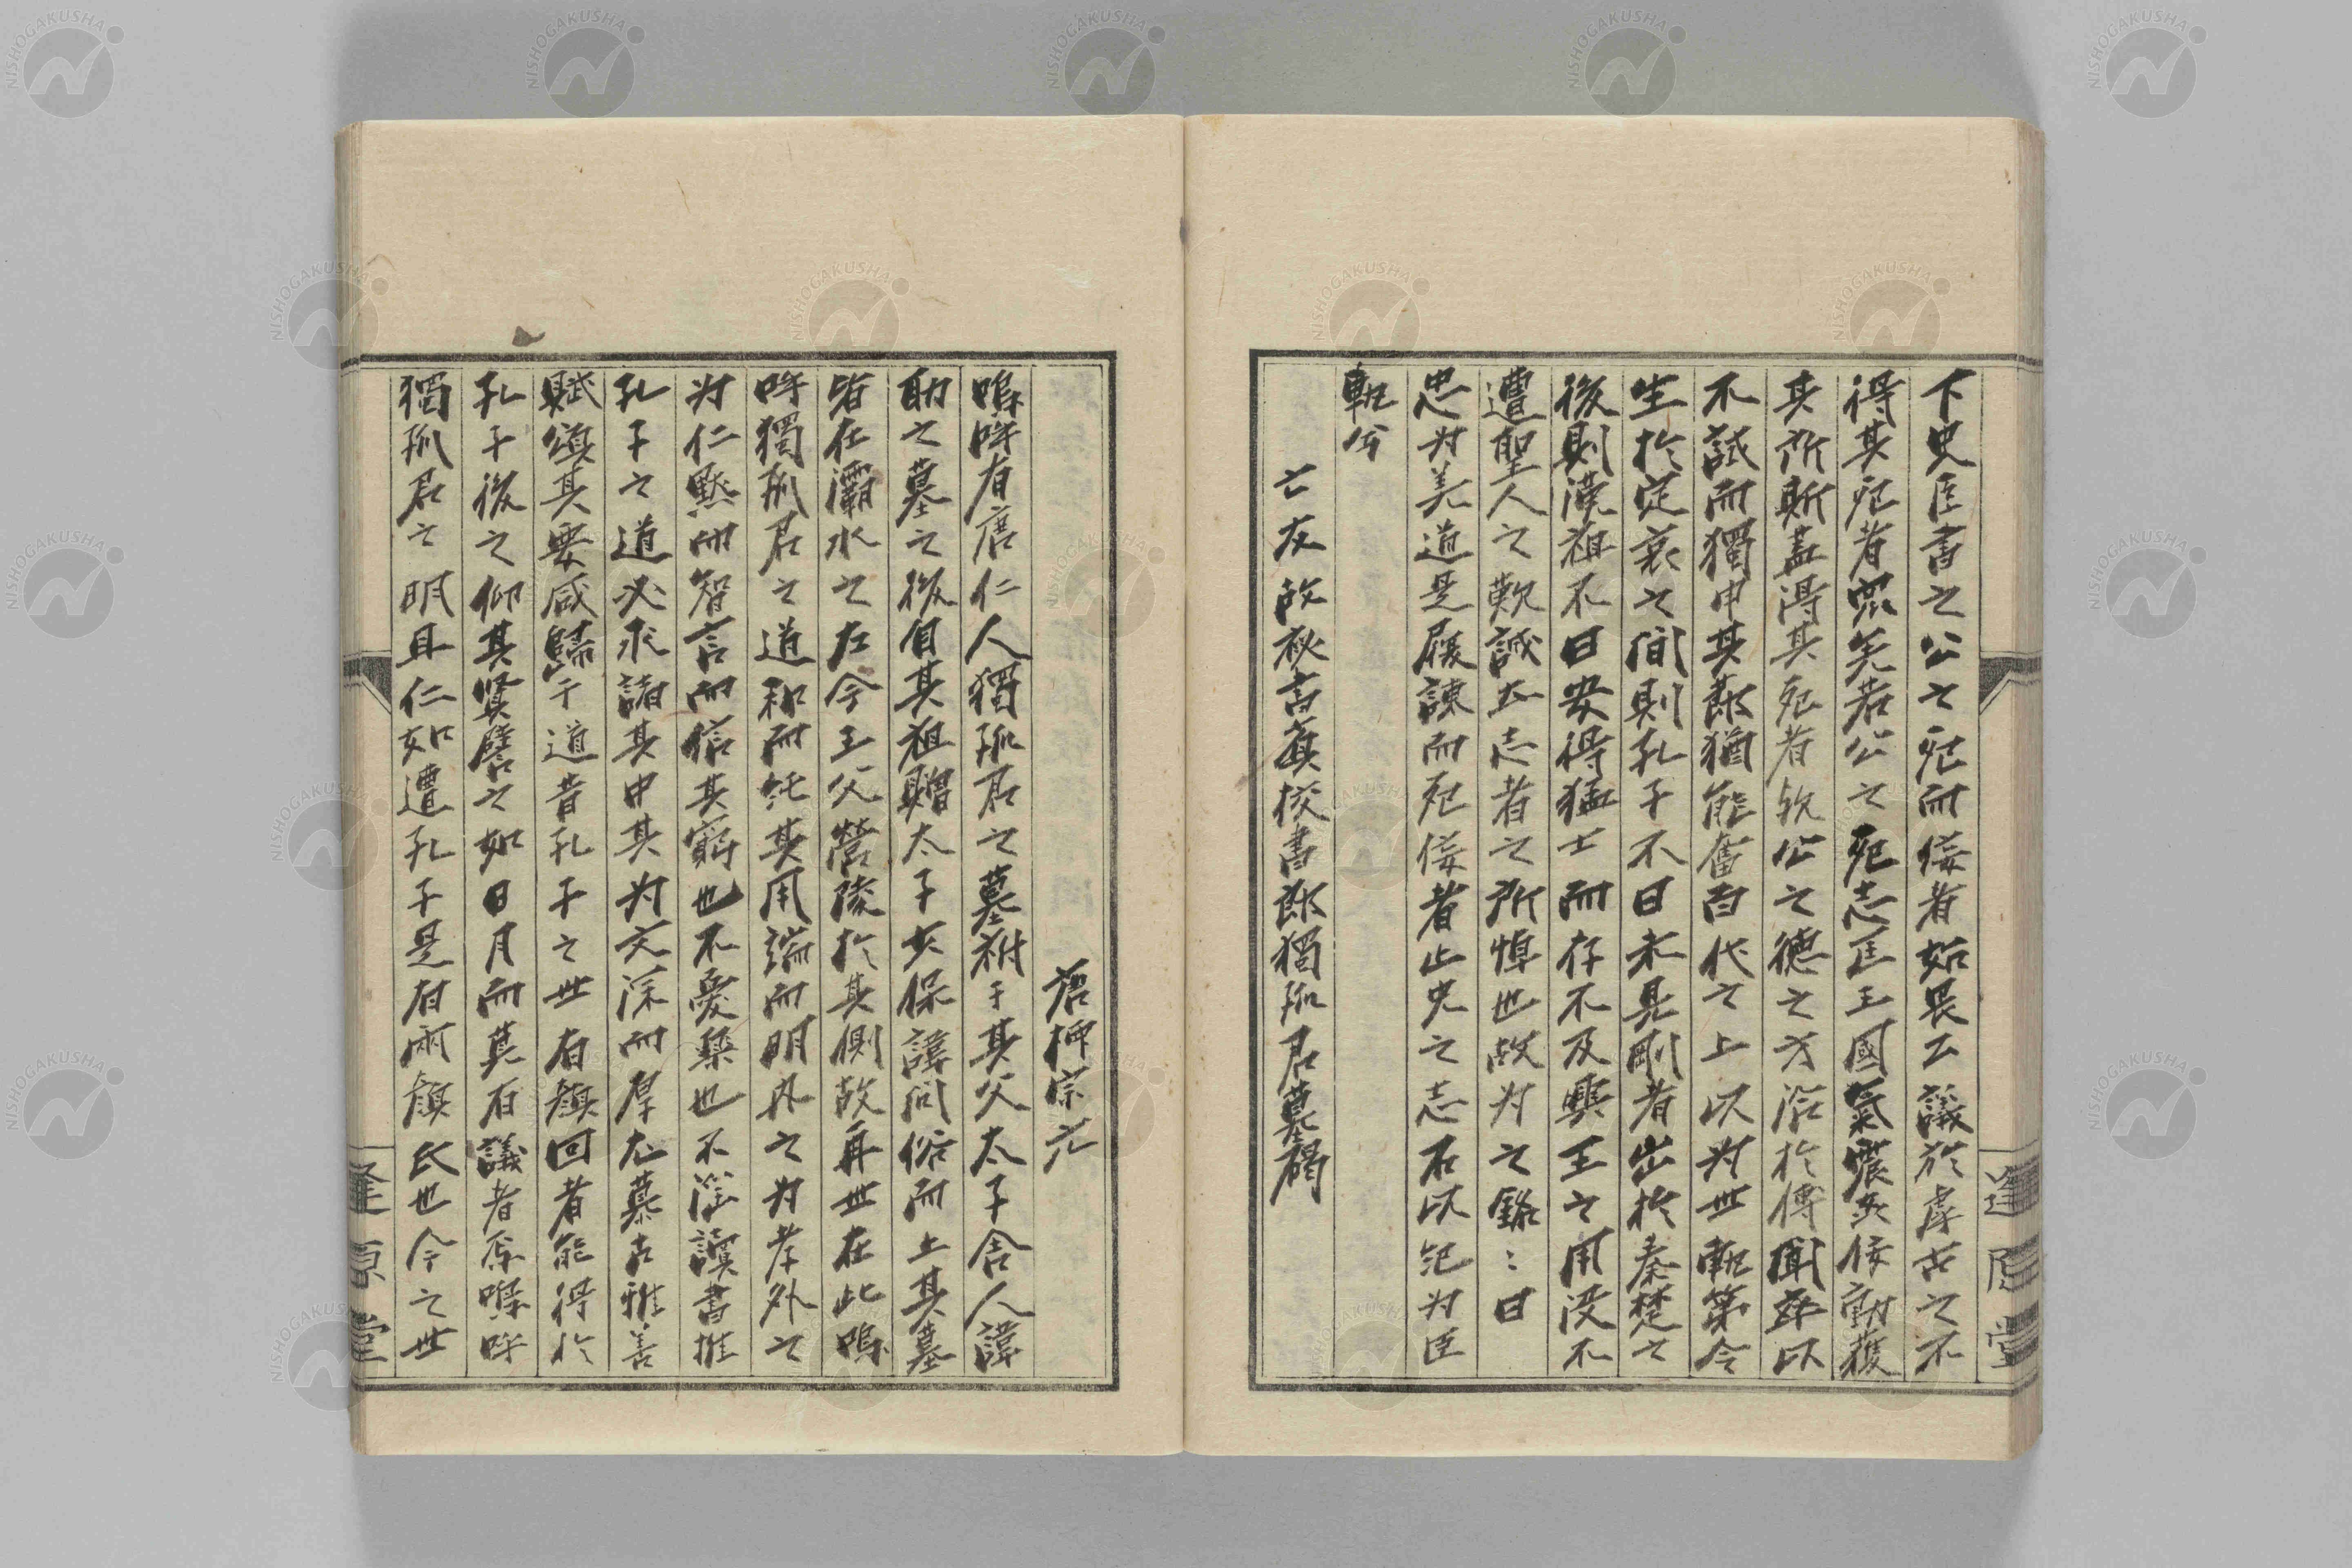 下史臣書之公之死而佞者始畏公議於虖古之不
得其死者衆矣若公之死志匡王國氣震姦佞動獲
其所斯蓋得其死者歟公之德之才洽於傳聞卒以
不試而獨申其節猶能奮百代之上以爲世軌第令
生於定哀之間則孔子不曰未見剛者出於秦楚之
後則漢祖不曰安得猛士而存不及興王之用沒不
遭聖人之歎誠立志者之所悼也故爲之銘〻曰
忠爲美道是履諫而死佞者止史之志石以紀爲臣
軌兮
亡友故秘書省校書郎獨孤君墓碣
唐柳宗元
嗚呼有唐仁人獨孤君之墓祔于其父太子舍人諱
助之墓之後自其祖贈太子少保諱問俗而上其墓
皆在灞水之左今王父營陵於其側故再世在此嗚
呼獨孤君之道和而純其用端而明内之爲孝外之
爲仁默而智言而信其窮也不憂樂也不淫讀書推
孔子之道必求諸其中其爲文深而厚尤慕古雅善
賦頌其要咸歸于道昔孔子之世有顏回者能得於
孔子後之仰其賢譬之如日月而莫有議者焉嗚呼
獨孤君之明且仁如遭孔子是有兩顏氏也今之世
逢原堂
逢原堂
NISHOGAKUSHA